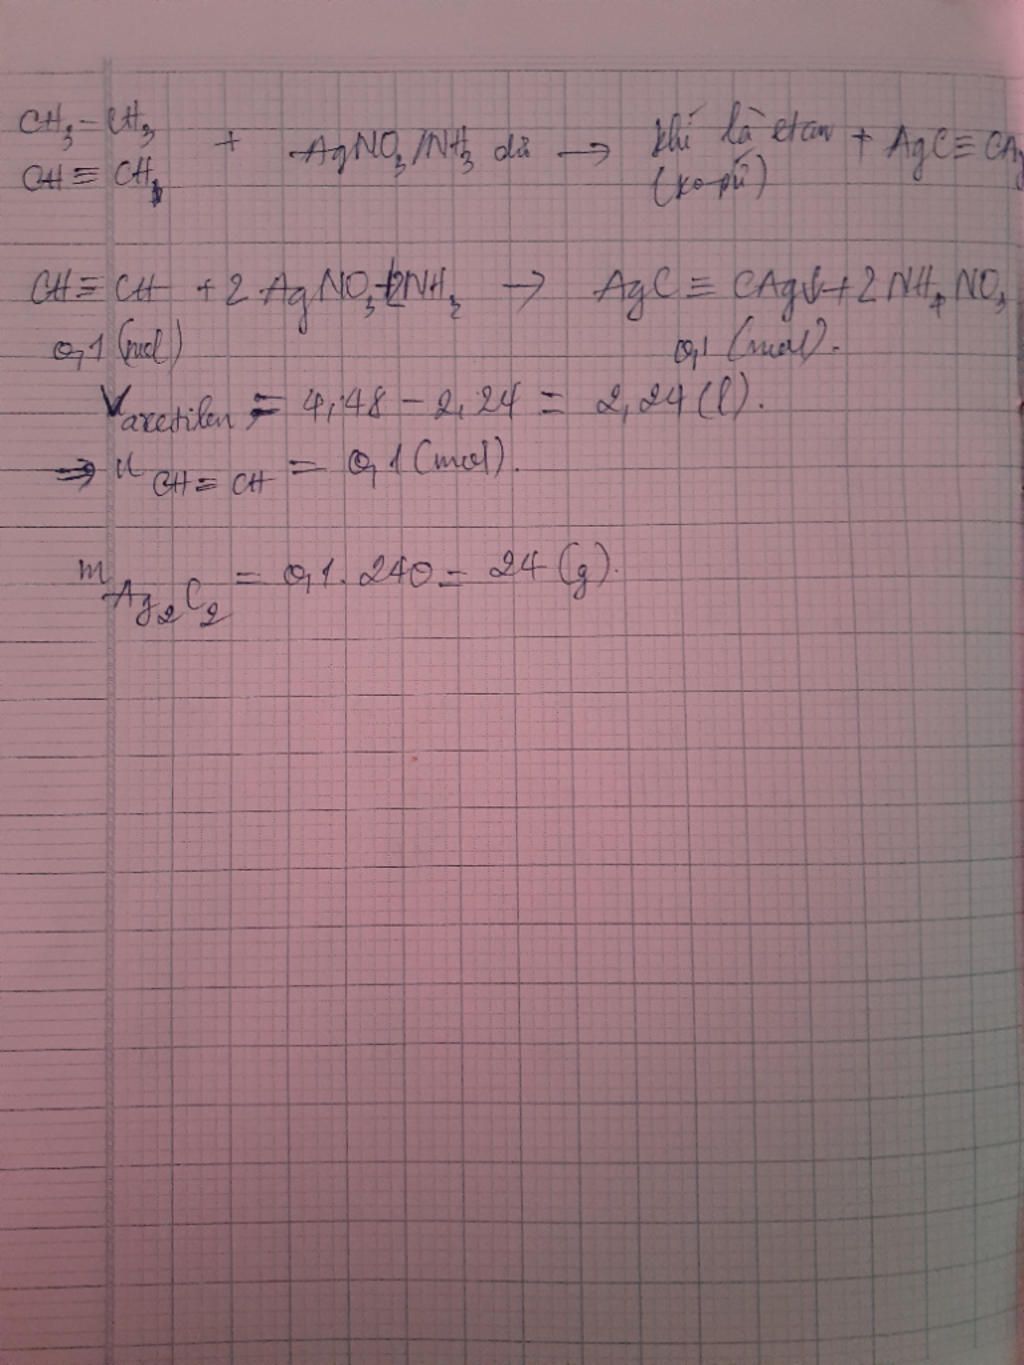 CH₃-CH₃
CH≡CH
+ AgNO₃/NH₃ dư → khí là etan + AgC≡CAg
(ko pứ)
CH≡CH + 2AgNO₃+2NH₃ → AgC≡CAg↓+2NH₄NO₃
0,1 (mol) 0,1 (mol).
V axetilen = 4,48 - 2,24 = 2,24 (l).
⇒ n CH≡CH = 0,1 (mol).
m Ag₂C₂ = 0,1.240 = 24 (g).